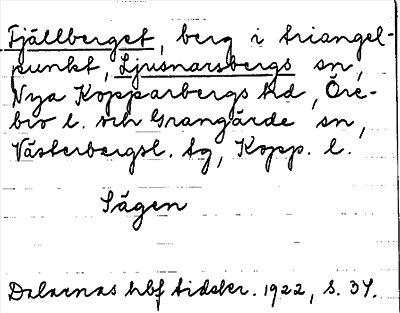 Fjällberget, berg i triangel-
punkt, Ljusnarsbergs sn,
Nya Kopparbergs hd, Öre-
bro l. och Grangärde sn,
Västerbergsl. tg, Kopp. l.
Sägen
Dalarnas hbf tidskr. 1922, s. 34.